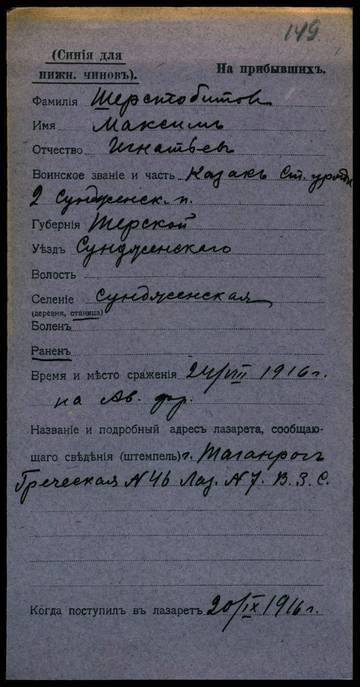 149.
(Синія для
нижн. чиновъ).
На прибывшихъ.
Фамилія Шерстобитов
Имя Максимъ
Отчество Игнатьев
Воинское званіе и часть Казакъ Ст.
2 Сунженск. п.
Губернія Терской
Уѣздъ Сунженскаго
Волость
Селеніе Сунженская
(деревня, станица)
Боленъ
Раненъ
Время и мѣсто сраженія 24/VIII 1916 г.
на Ав. фр.
Названіе и подробный адресъ лазарета, сообщаю-
щаго свѣдѣнія (штемпель) г. Таганрогъ
Греческая N 46 Лаз. N 7. В. З. С.
Когда поступилъ въ лазаретъ 20/IX 1916 г.